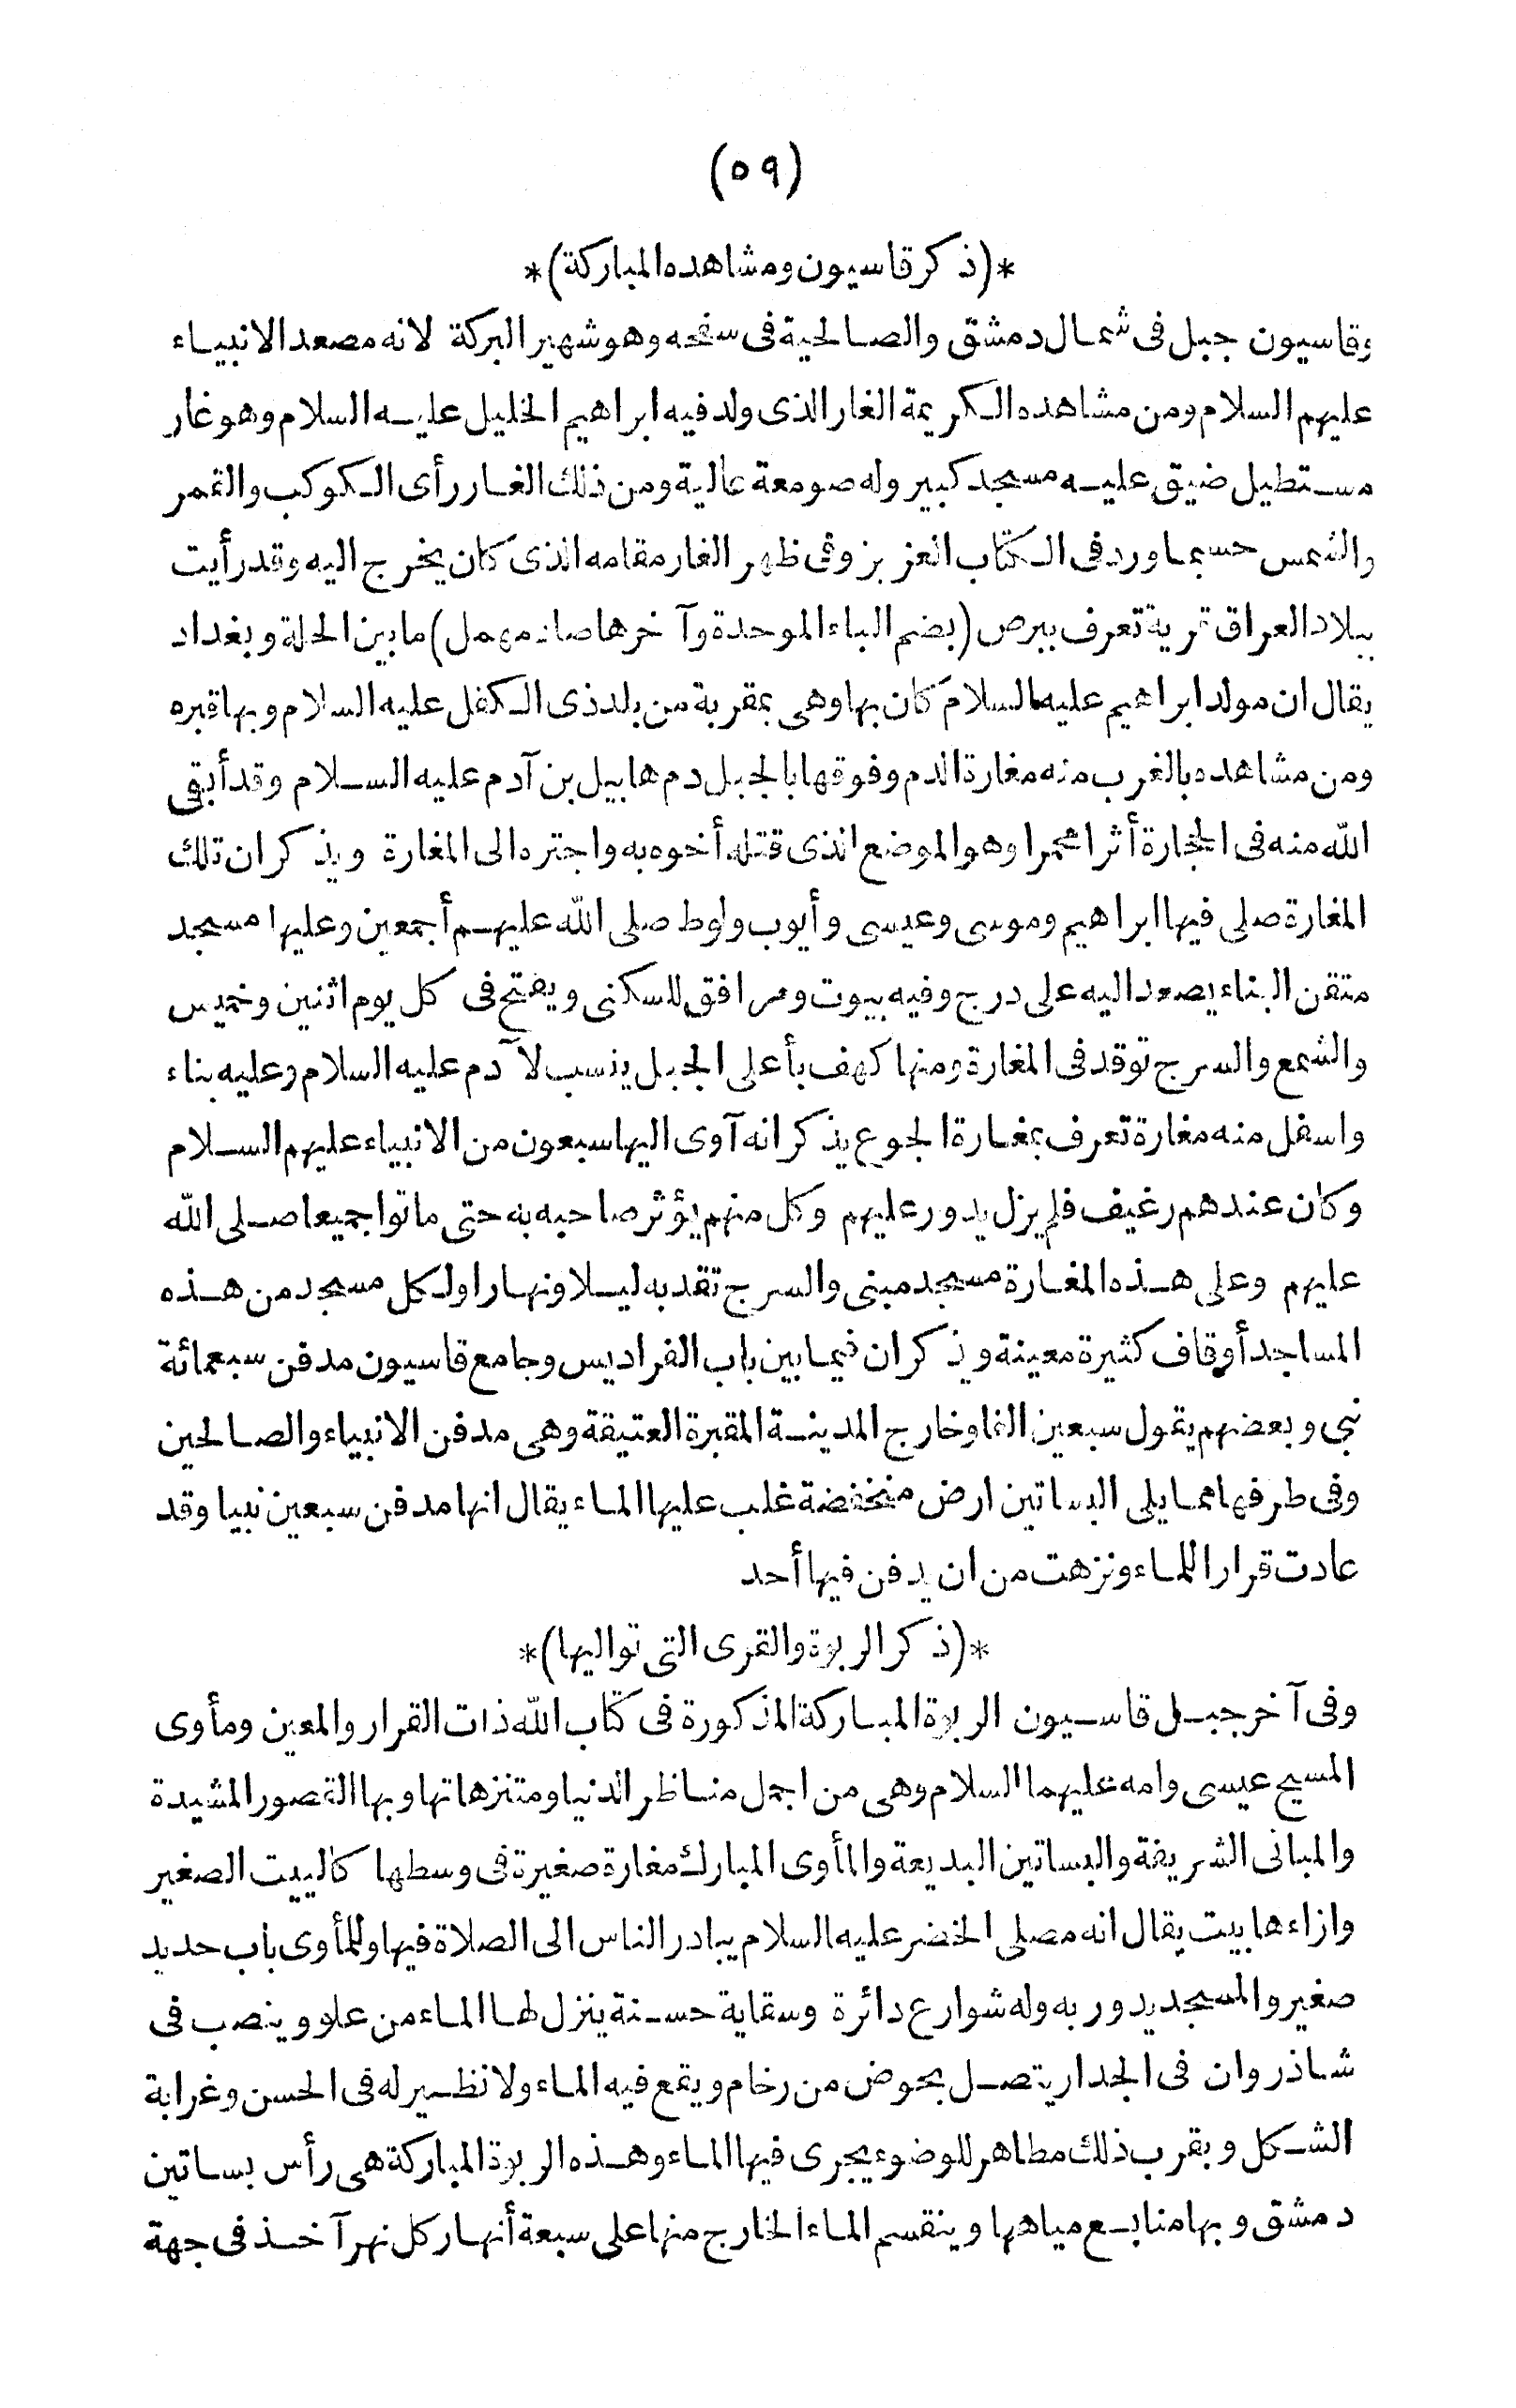 (٥٩)
*(ذكر قاسيون ومشاهده المباركة)*
وقاسيون جبل فى شمال دمشق والصالحية فى سفحه وهو شهير البركة لانه مصعد الانبياء
عليهم السلام ومن مشاهده الكريمة الغار الذى ولد فيه ابراهيم الخليل عليه السلام وهو غار
مستطيل ضيق عليه مسجد كبير وله صومعة عالية ومن ذلك الغار رأى الكوكب والقمر
والشمس حسبما ورد فى الكتاب العزيز وفى ظهر الغار مقامه الذى كان يخرج اليه وقد رأيت
ببلاد العراق قرية تعرف ببرص (بضم الباء الموحدة وآخرها صاد مهمل) ما بين الحلة وبغداد
يقال ان مولد ابراهيم عليه السلام كان بها وهى بمقربة من بلد ذى الكفل عليه السلام وبها قبره
ومن مشاهده بالغرب منه مغارة الدم وفوقها بالجبل دم هابيل بن آدم عليه السلام وقد أبقى
الله منه فى الحجارة أثرا محمرا وهو الموضع الذى قتله أخوه به واجتره الى المغارة ويذكر ان تلك
المغارة صلى فيها ابراهيم وموسى وعيسى وأيوب ولوط صلى الله عليهم أجمعين وعليها مسجد
متقن البناء يصعد اليه على درج وفيه بيوت ومرافق للسكنى ويفتح فى كل يوم اثنين وخميس
والشمع والسرج توقد فى المغارة ومنها كهف بأعلى الجبل ينسب لآدم عليه السلام وعليه بناء
واسفل منه مغارة تعرف بمغارة الجوع يذكر انه آوى اليها سبعون من الانبياء عليهم السلام
وكان عندهم رغيف فلم يزل يدور عليهم وكل منهم يؤثر صاحبه به حتى ماتوا جميعا صلى الله
عليهم وعلى هذه المغارة مسجد مبنى والسرج تقد به ليلا ونهارا ولكل مسجد من هذه
المساجد أوقاف كثيرة معينة ويذكر ان فيما بين باب الفراديس وجامع قاسيون مدفن سبعمائة
نبى وبعضهم يقول سبعين الفا وخارج المدينة المقبرة العتيقة وهى مدفن الانبياء والصالحين
وفى طرفها مما يلى البساتين ارض منخفضة غلب عليها الماء يقال انها مدفن سبعين نبيا وقد
عادت قرارا للماء ونزهت من ان يدفن فيها أحد
*(ذكر الربوة والقرى التى تواليها)*
وفى آخر جبل قاسيون الربوة المباركة المذكورة فى كتاب الله ذات القرار والمعين ومأوى
المسيح عيسى وامه عليهما السلام وهى من اجمل مناظر الدنيا ومتنزهاتها وبها القصور المشيدة
والمبانى الشريفة والبساتين البديعة والمأوى المبارك مغارة صغيرة فى وسطها كالبيت الصغير
وازاءها بيت يقال انه مصلى الخضر عليه السلام يبادر الناس الى الصلاة فيها وللمأوى باب حديد
صغير والمسجد يدور به وله شوارع دائرة وسقاية حسنة ينزل لها الماء من علو وينصب فى
شاذروان فى الجدار يتصل بحوض من رخام ويقع فيه الماء ولا نظير له فى الحسن وغرابة
الشكل وبقرب ذلك مطاهر للوضوء يجرى فيها الماء وهذه الربوة المباركة هى رأس بساتين
دمشق وبها منابع مياهها وينقسم الماء الخارج منها على سبعة أنهار كل نهر آخذ فى جهة